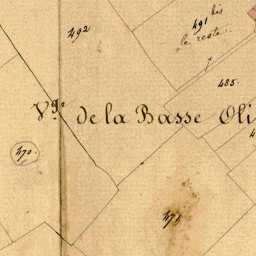 bis
491
492
le reste
485.
Vge de la Basse Oli
470.
471